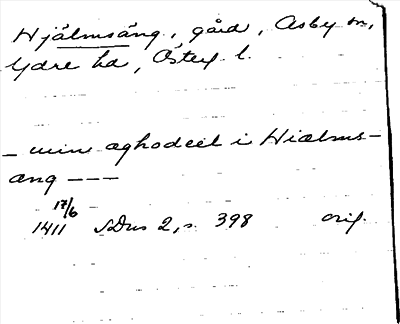 Hjälmsäng, gård, Asby sn,
Ydre hd, Östergl.
– min aghodeel i Hiælms-
æng – – –
17/6
1411 SDns 2, s. 398 orig.